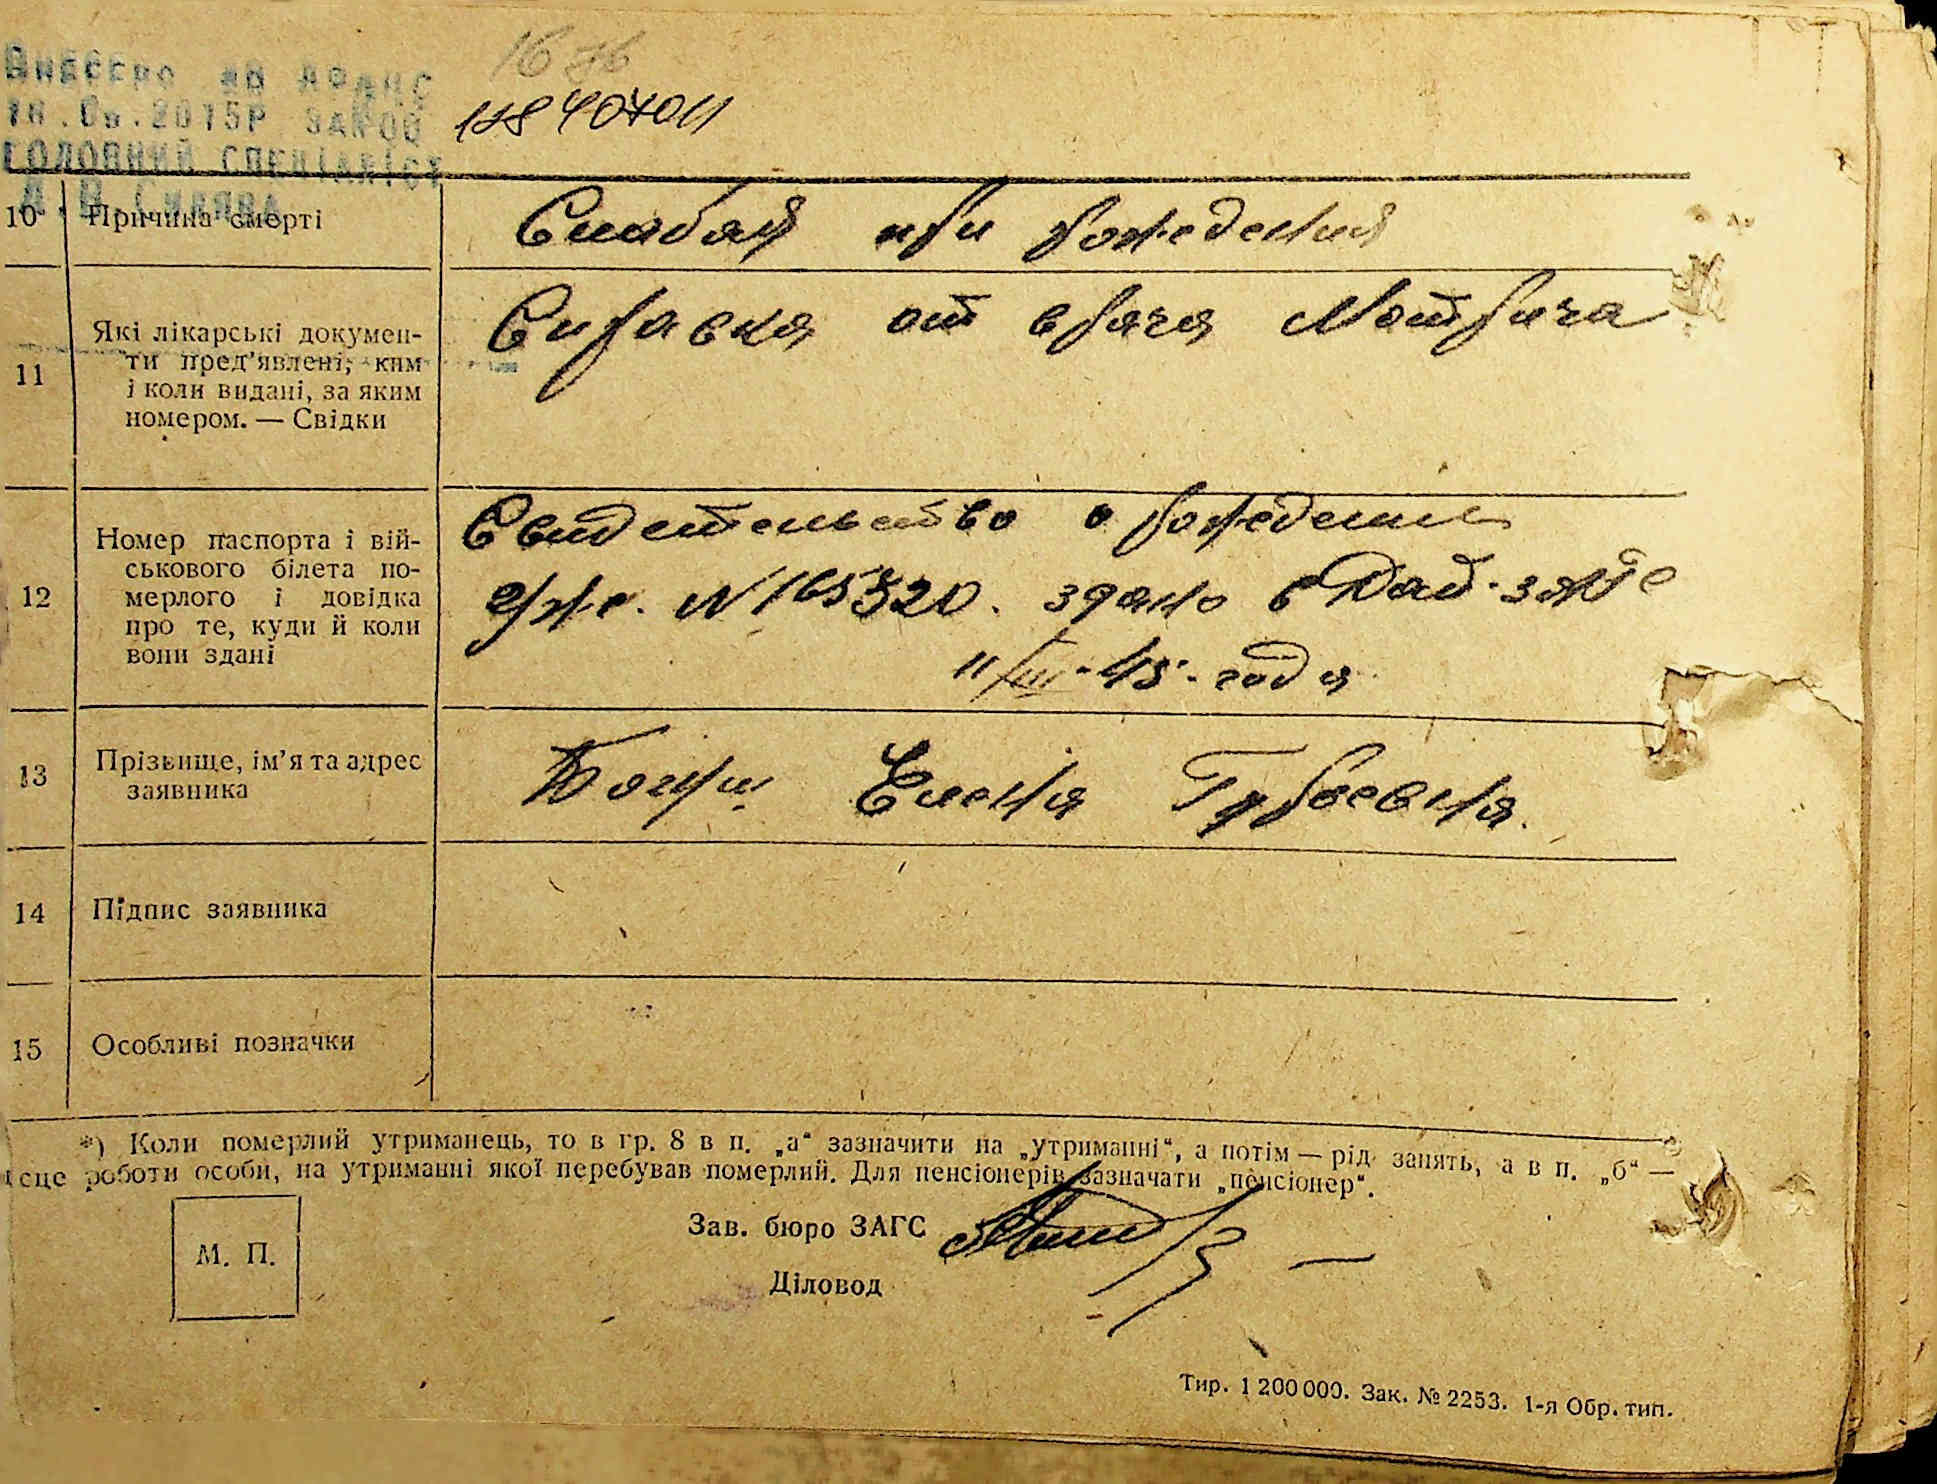 Внесено до ДРАЦС
2015р
ГОЛОВНИЙ СПЕЦІАЛІСТ
10 Причина смерті
Слабая при рождения
11 Які лікарські докумен-
ти пред'явлені, ким
і коли видані, за яким
номером. — Свідки
Справка от врача
12 Номер паспорта і вій-
ськового білета по-
мерлого і довідка
про те, куди й коли
вони здані
Свидетельство о рождении
N 165320. здано в Рай. загсе
11/III-45. года
13 Прізвище, ім'я та адрес
заявника
Елена
14 Підпис заявника
15 Особливі позначки
*) Коли померлий утриманець, то в гр. 8 в п. „а“ зазначити на „утриманні“, а потім — рід занять, а в п. „б“ —
ісце роботи особи, на утриманні якої перебував померлий. Для пенсіонерів зазначати „пенсіонер“.
М. П.
Зав. бюро ЗАГС
Діловод
Тир. 1 200 000. Зак. № 2253. 1-я Обр. тип.